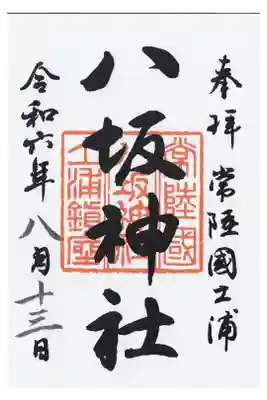 奉拝 常陸國土浦
八坂神社
常陸國
八坂神社
土浦鎮座
令和六年八月十三日